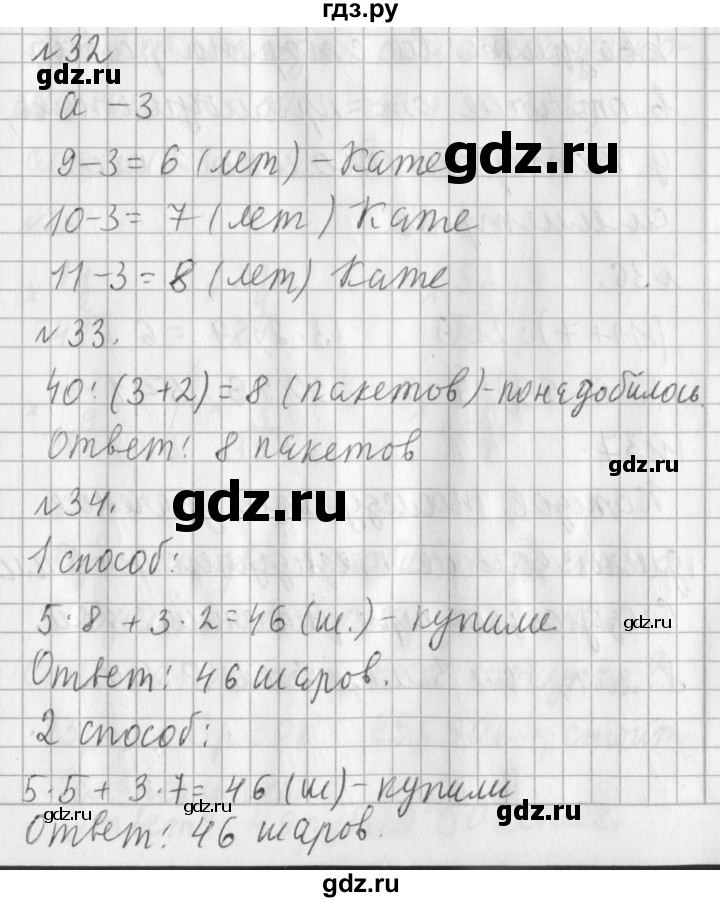 гдз.ру
№32
gdz.ru
а - 3
9-3= 6 (лет) - Кате
gdz.ru
10-3= 7 (лет) Кате
11-3= 8 (лет) Кате
№33.
40:(3+2)= 8 (пакетов)-понадобилось.
Ответ: 8 пакетов
gdz.ru
№34.
gdz.ru
1 способ:
5·8 + 3·2=46 (ш.) - купили
gdz.ru
Ответ: 46 шаров.
2 способ:
5·5 + 3·7= 46 (ш) - купили
gdz.ru
gdz.ru
Ответ: 46 шаров.
gdz.ru